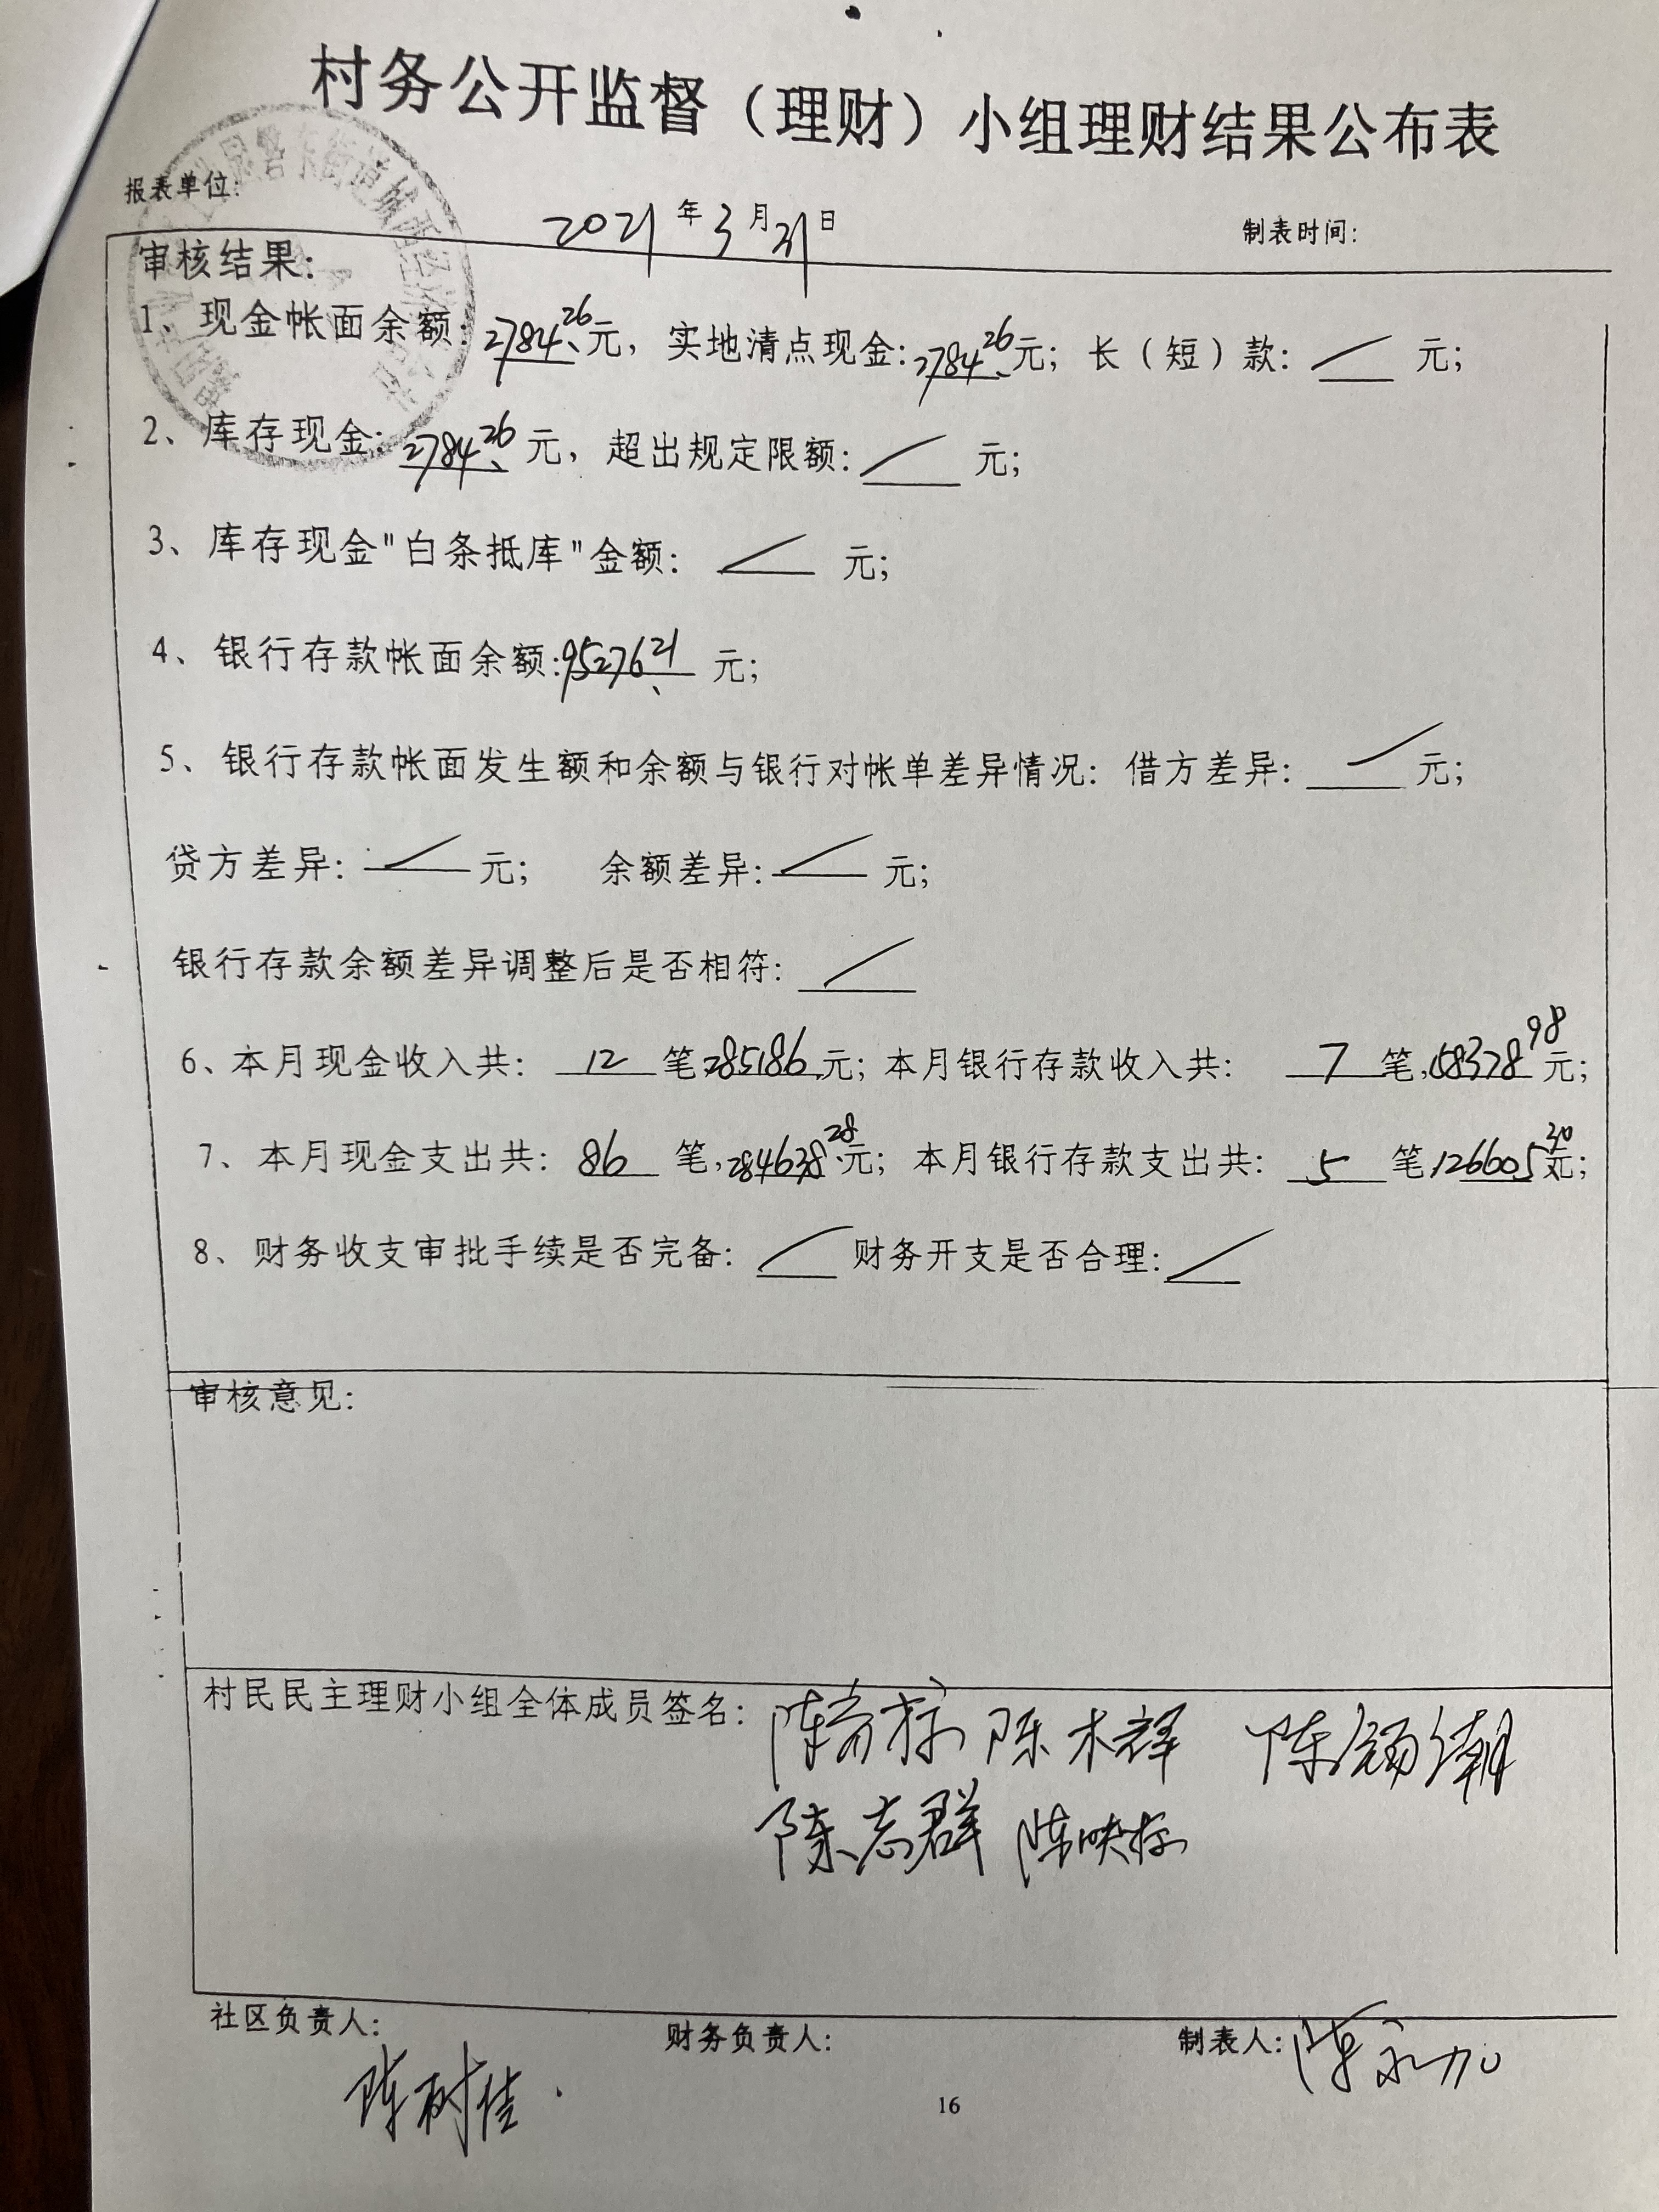 村务公开监督（理财）小组理财结果公布表
报表单位：
2021年3月31日 制表时间：
审核结果：
1、现金帐面余额：2784.26元，实地清点现金：2784.26元；长（短）款：／元；
2、库存现金：2784.26元，超出规定限额：／元；
3、库存现金"白条抵库"金额：／元；
4、银行存款帐面余额：95276.21元；
5、银行存款帐面发生额和余额与银行对帐单差异情况：借方差异：／元；
贷方差异：／元； 余额差异：／元；
银行存款余额差异调整后是否相符：／
6、本月现金收入共：12笔285186元；本月银行存款收入共：7笔，158378.98元；
7、本月现金支出共：86笔，284638.28元；本月银行存款支出共：5笔126605.30元；
8、财务收支审批手续是否完备：／财务开支是否合理：／
审核意见：
村民民主理财小组全体成员签名： 陈木辉
陈志群
社区负责人： 财务负责人： 制表人：
陈树佳
16